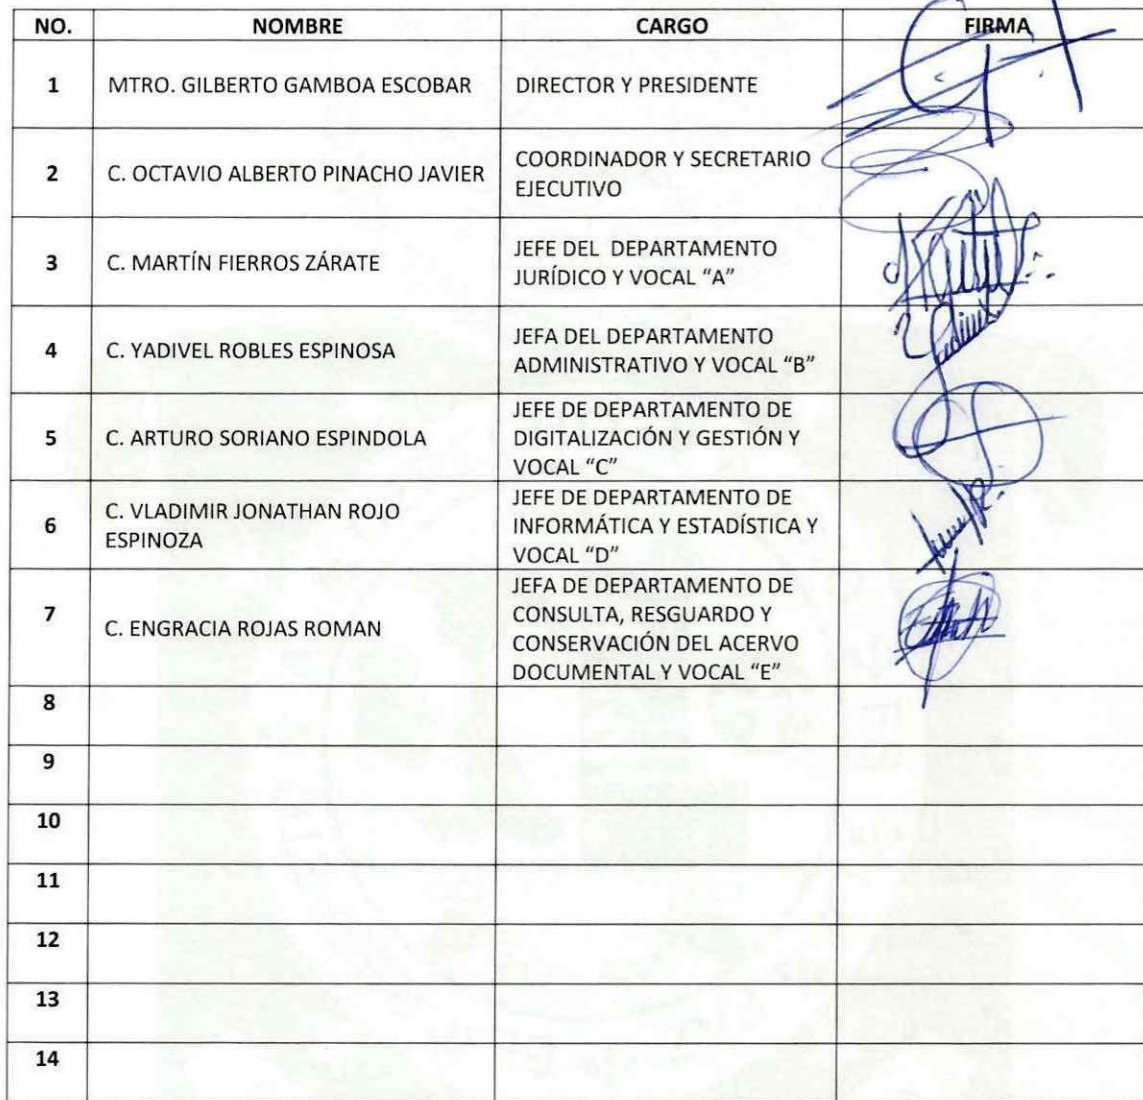 NO. NOMBRE CARGO FIRMA
1 MTRO. GILBERTO GAMBOA ESCOBAR DIRECTOR Y PRESIDENTE
2 C. OCTAVIO ALBERTO PINACHO JAVIER COORDINADOR Y SECRETARIO
EJECUTIVO
3 C. MARTÍN FIERROS ZÁRATE JEFE DEL DEPARTAMENTO
JURÍDICO Y VOCAL “A”
4 C. YADIVEL ROBLES ESPINOSA JEFA DEL DEPARTAMENTO
ADMINISTRATIVO Y VOCAL “B”
5 C. ARTURO SORIANO ESPINDOLA JEFE DE DEPARTAMENTO DE
DIGITALIZACIÓN Y GESTIÓN Y
VOCAL “C”
6 C. VLADIMIR JONATHAN ROJO
ESPINOZA JEFE DE DEPARTAMENTO DE
INFORMÁTICA Y ESTADÍSTICA Y
VOCAL “D”
7 C. ENGRACIA ROJAS ROMAN JEFA DE DEPARTAMENTO DE
CONSULTA, RESGUARDO Y
CONSERVACIÓN DEL ACERVO
DOCUMENTAL Y VOCAL “E”
8
9
10
11
12
13
14